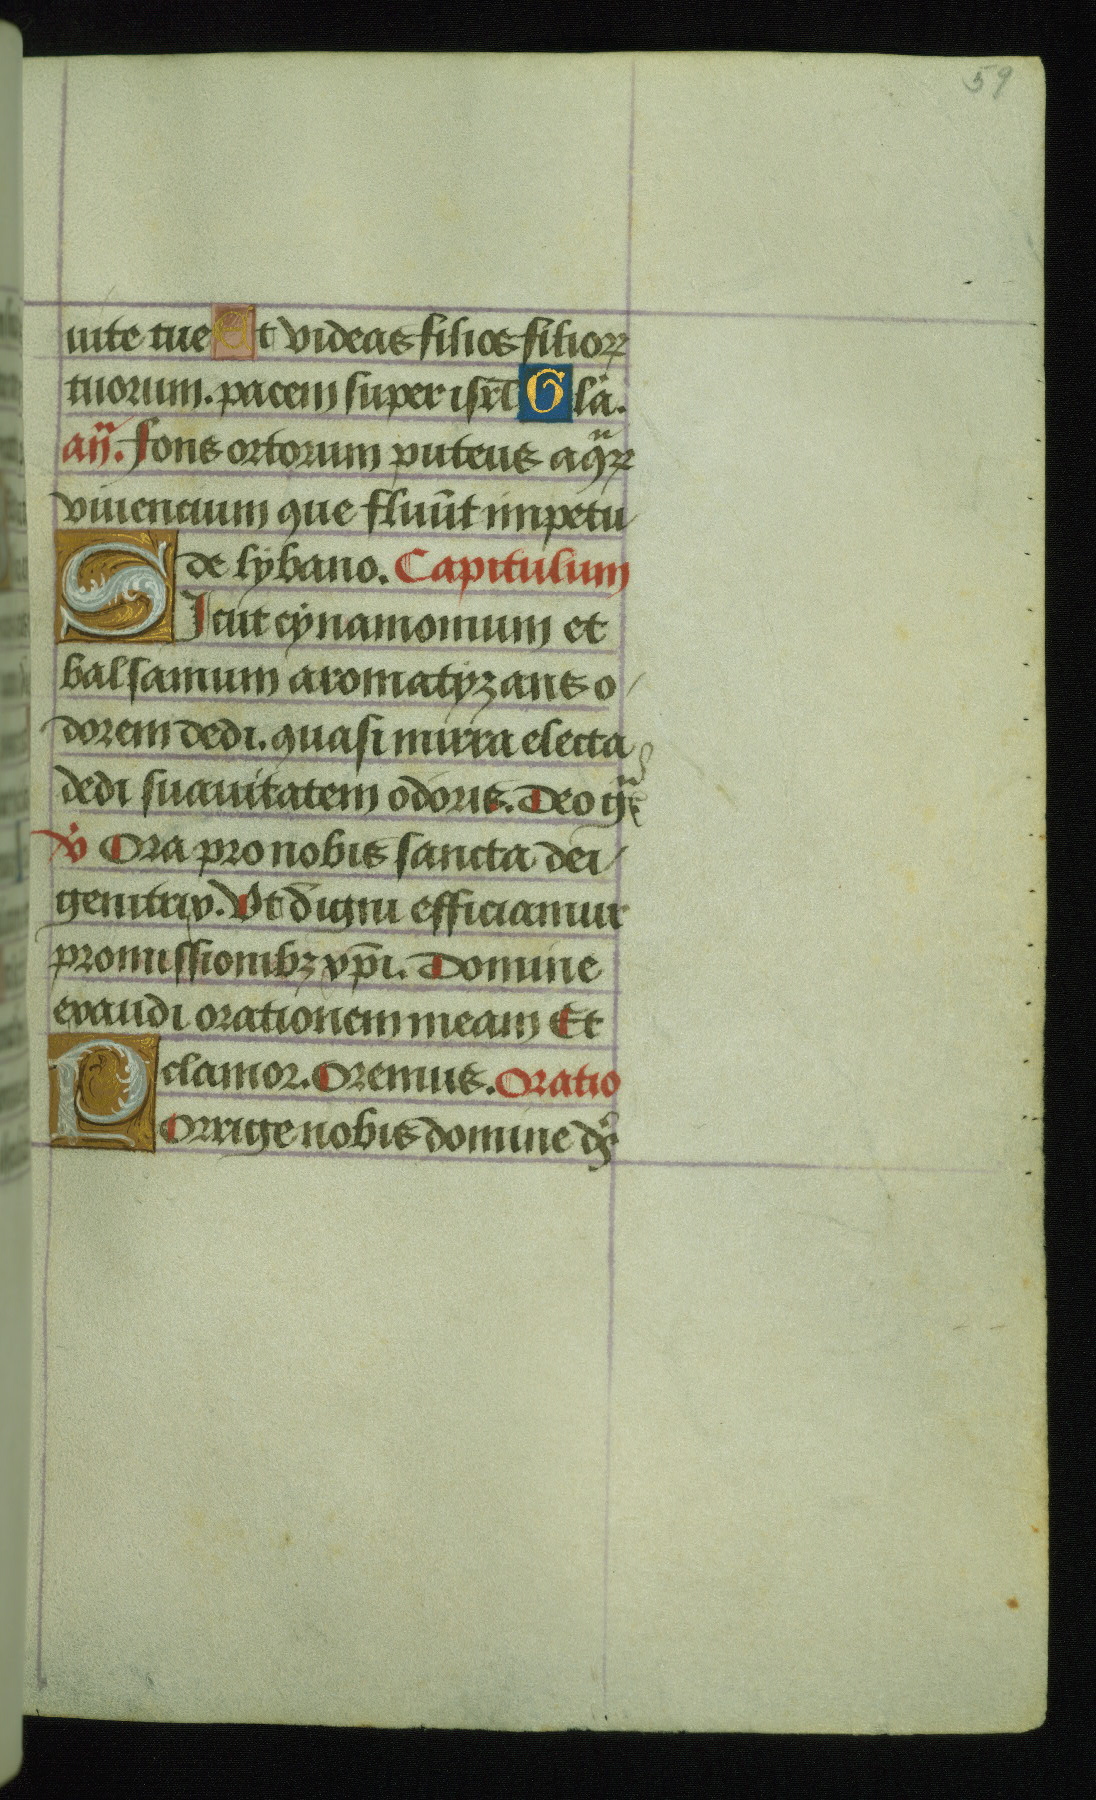 59
uite tue Et videas filios filioꝝ
tuorum. pacem super isrl̄ Gla.
an̄. Fons ortorum puteus aq̄ꝝ
viuencium que fluūt impetu
de lybano. Capitulum
SIcut cynamomum et
balsamum aromatyzans o
dorem dedi. quasi mirra electa
dedi suauitatem odoris. Deo gr̄s
v̇ Ora pro nobis sancta dei
genitrix. Vt digni efficiamur
promissionibꝫ xp̄i. Domine
exaudi orationem meam Et
clamor. Oremus. Oratio
POrrige nobis domine ds̄